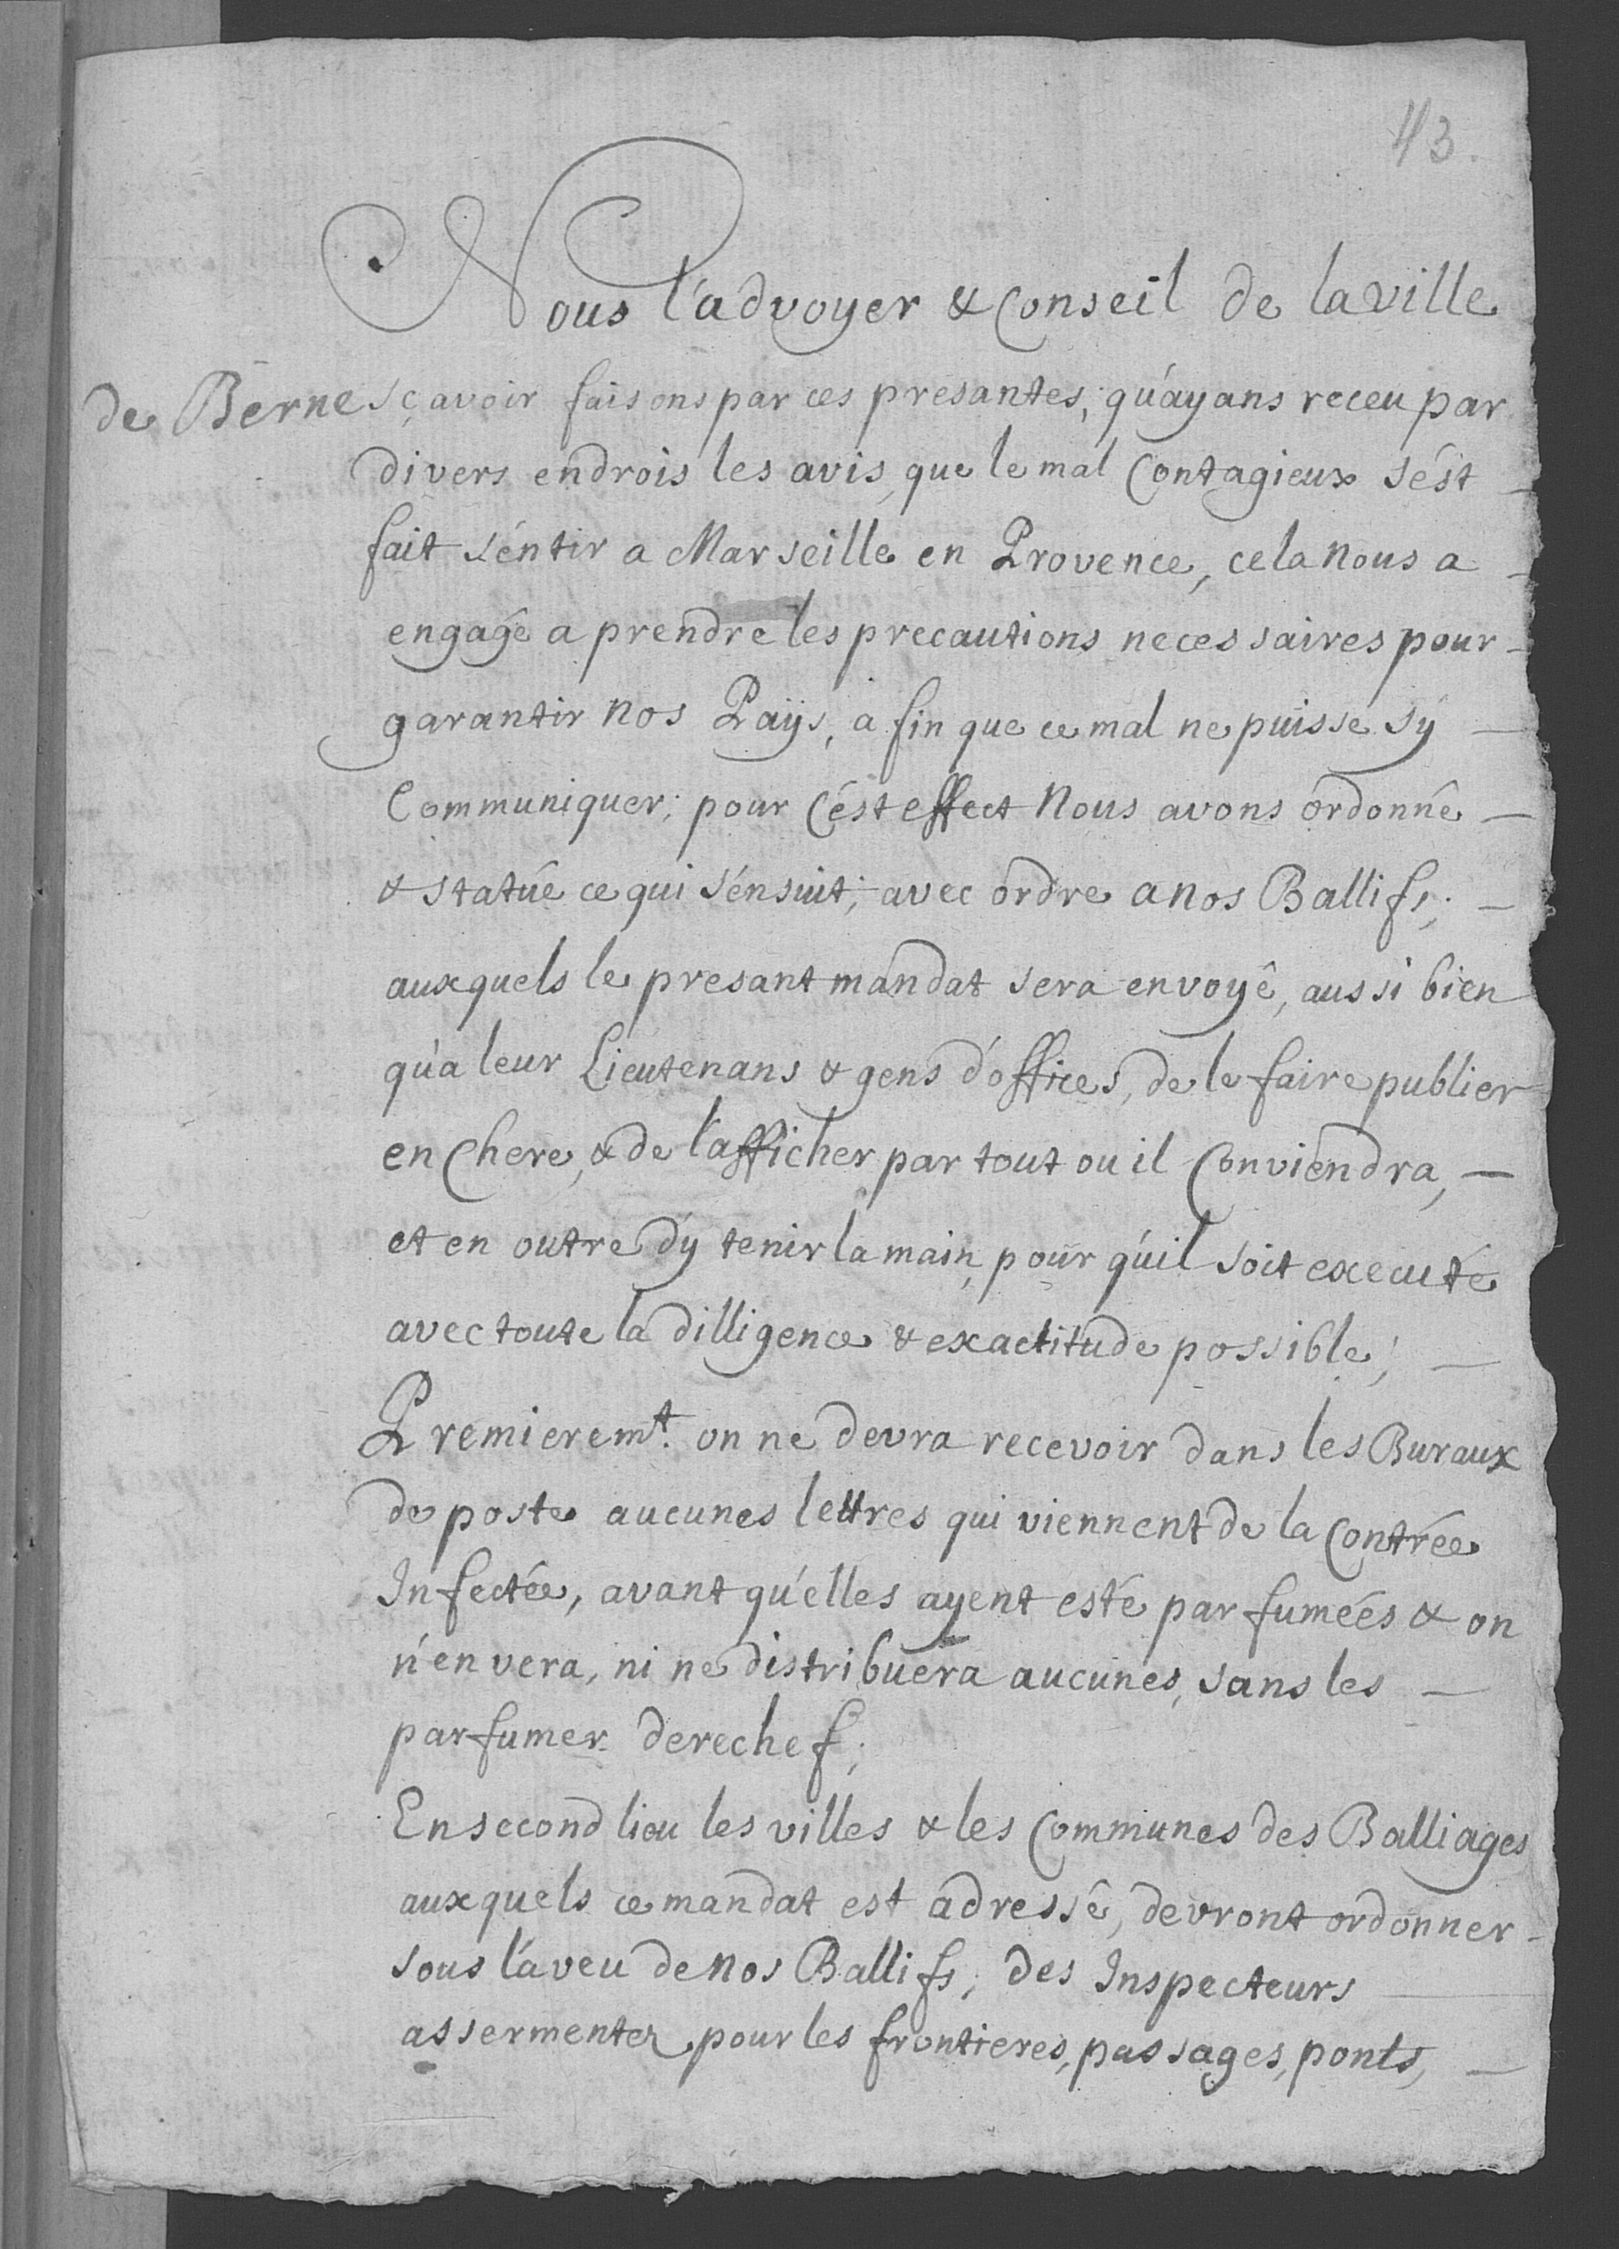 43.
Nous l'advoyer & Conseil de la ville
de Berne sçavoir faisons par ces presantes, qu'ayans receu par
divers endrois les avis, que le mal Contagieux s'ést
fait séntir a Marseille en Provence, cela nous a
engagé a prendre les precautions necessaires pour
garantir nos Païjs, a fin que ce mal ne puisse s'y
Communiquer; pour cést effect Nous avons ordonnê
& statûe ce qui s'énsuit; avec ordre a nos Ballifs;
auxquels le presant mandat sera envoyê, aussi bien
qu'a leur Lieutenans & gens d'offices, de le faire publier
en Chere, & de l'afficher par tout ou il Conviendra,
et en outre d'y tenir la main, pour qu'il soit executé
avec toute la dilligence & exactitude possible;
Premierem.t on ne devra recevoir dans les Buraux
de poste aucunes lettres qui viennent de la Contrée
Infectée, avant qu'elles ayent esté parfumées & on
n'envera, ni ne distribuera aucunes, sans les
parfumer derechef;
En second lieu les villes & les Communes des Balliages
auxquels ce mandat est adressê, devront ordonner
sous l'aveu de nos Ballifs, des Inspecteurs
assermentez pour les frontieres, passages, ponts,